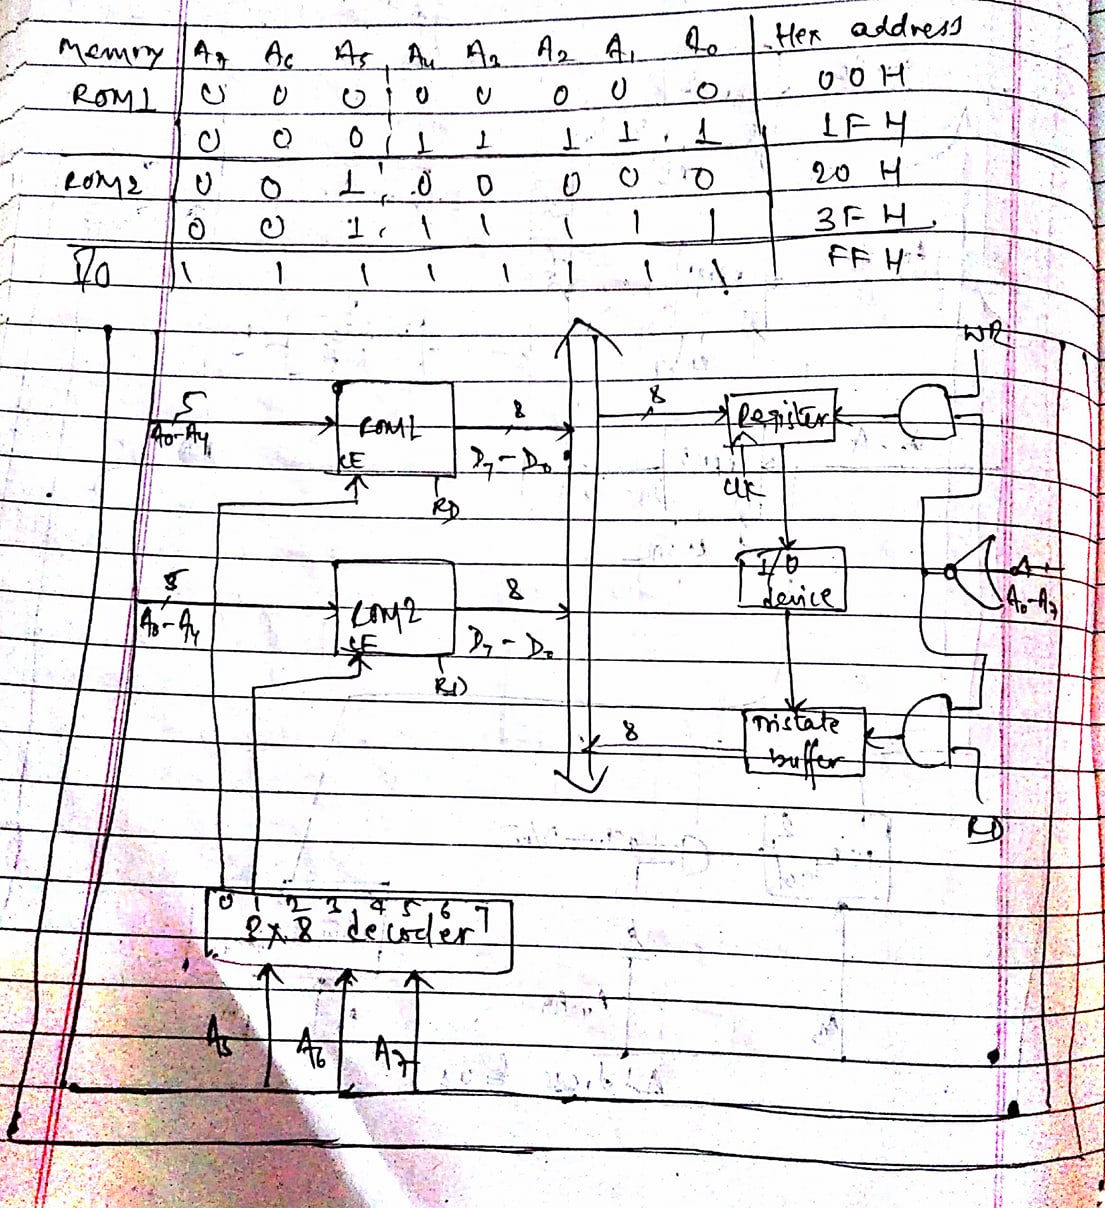 Memory A7 A6 A5 A4 A3 A2 A1 A0 Hex address
ROM1 0 0 0 0 0 0 0 0 00H
0 0 0 1 1 1 1 1 1FH
ROM2 0 0 1 0 0 0 0 0 20 H
0 0 1 1 1 1 1 1 3FH
I/O 1 1 1 1 1 1 1 1 FFH
WR
5
A0-A4
ROM1
CE
RD
8
D7-D0
8
Register
CLK
I/O
device
A0-A7
5
A0-A4
ROM2
CE
RD
8
D7-D0
8
Tristate
buffer
RD
0 1 2 3 4 5 6 7
3x8 decoder
A5 A6 A7